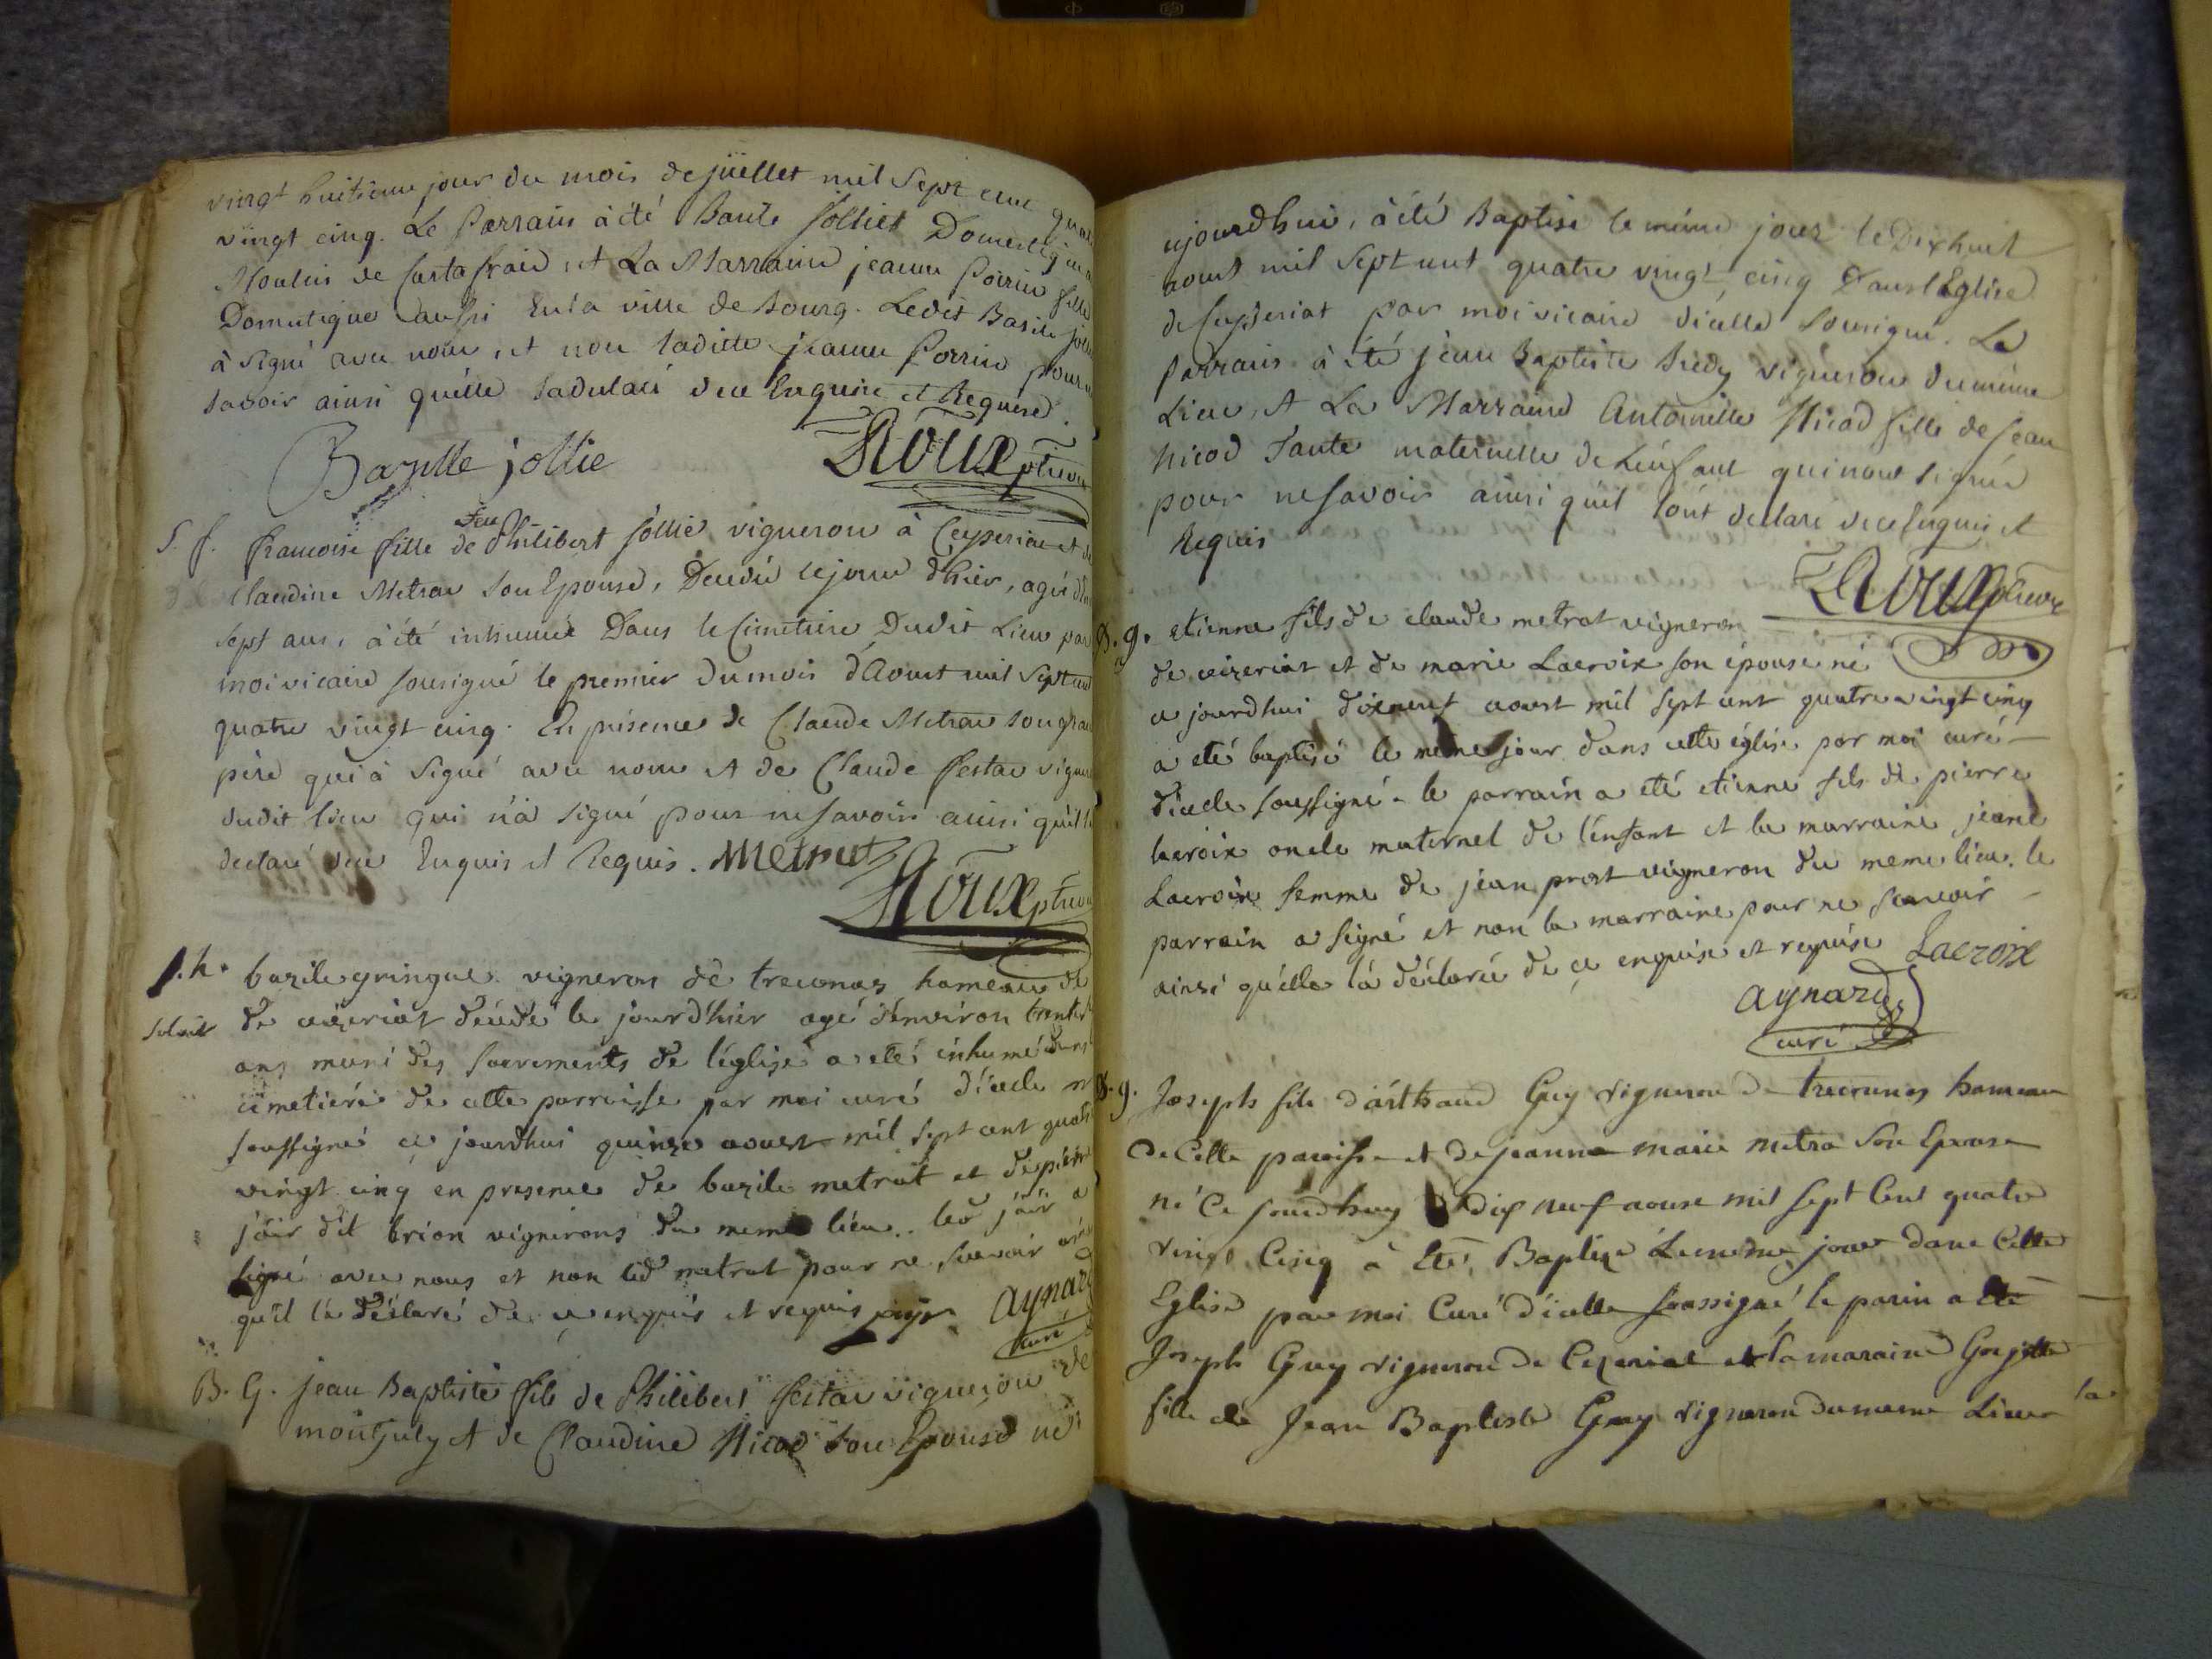 vingt huitieme jour du mois de jüillet mil sept cent quat
vingt cinq. Le Parrain à été Basile Jolliet Domestique a
Moulin de Curtafraid, et La Marraine jeanne Poirin fille
Domestique aussi En la ville de Bourg. Ledit Basile jolli
à signé avec nous, et non laditte jeanne Porrin pour n
savoir ainsi quélle ladeclaré dece Enquise et Requise.
Bazille jollie
Roux ptrevic
S. f. francoise fille de feu Philibert Jollié vigneron à Ceyseriat et de
Claudine Metrau son Epouse, Decedé le jour d'hier, agé d'
sept ans, à été inhumée Dans le Cimetiere Dudit Lieu par
moi vicaire sousigné le premier du mois d'Aoust mil sept cent
quatre vingt cinq. En présence de Claude Metrau son gran
pére qui à signé avec nous et de Claude festau vigner
dudit lieu qui n'a signé pour ne savoir ainsi qu'il l
declaré dece Enquis et Requis. Metrat
Roux ptrevic
S. h. bazile gringue vigneron de treconas hameau de
de ceizeriat décédé le jour d'hier agé d'environ trente
ans muni des sacrements de l'église a eté inhumé dans
cimetiére de cette parroisse par moi curé d'icelle
soussigné ce jourdhui quinze aoust mil sept cent quatr
vingt cinq en presence de bazile metrat et de pierre
jöir dit brion vignerons du meme lieu. led jöir a
signé avec nous et non led metrat pour ne scavoir
qu'il la déclaré de ce enquis et requis
aynard
curé
B. G. jean Baptiste fils de Philibert festau vigneron de
montjuly et de Claudine Nicod son Epouse né
ujourdhui, à été Baptisé le même jour le Dixhuit
aoust mil sept cent quatre vingt cinq Dans l'Eglise
de Ceyseriat par moi vicaire d'icelle sousigné. Le
Parrain à été jean Baptiste vigneron du même
Lieu, et La Marraine Antoinette Nicod fille de Jean
Nicod Tante maternelle de L'enfant qui n'ont signé
pour ne savoir ainsi quil l'ont declaré de ce Enquis et
Requis
Roux ptrevic
B. g. etienne fils de claude metrat vigneron
de ceizeriat et de marie Lacroix son épouse né
ce jourdhui dixneuf aoust mil sept cent quatre vingt cinq
a eté baptisé le meme jour dans cette église par moi curé
d'icelle soussigné. le parrain a eté etienne fils de pierre
lacroix oncle maternel de l'enfant et la marraine jeane
Lacroix femme de jean prost vigneron du meme lieu. le
parrain a signé et non la marraine pour ne scavoir
ainsi qu'elle l'a déclaré de ce enquise et requise Lacroix
aynard
curé
B. g. Joseph fils d'arthaud Guy vigneron de treconnas hameau
De Cette paroisse et de jeanne marie metra son Epouse
né Ce jourdhuy dix neuf aoust mil sept Cent quatre
vingt Cinq à Eté Baptisé Le meme jour dans Cette
Eglise par moi Curé d'icelle soussigné le parin a Eté
Joseph Guy vigneron de Cezeriat et la maraine
fille de Jean Baptiste Guy vigneron du meme Lieu la